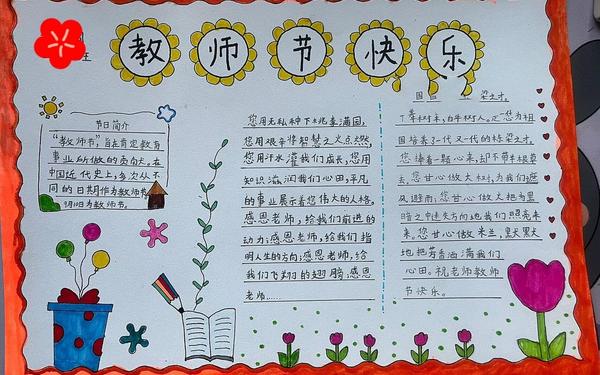 教师节快乐
节日简介
"教师节"旨在肯定教育
事业所做的贡献。在
中国近代史上,多次从不
同的日期作为教师节
为教师节。
您用无私种下桃李满园,
您用艰辛将智慧之火点燃,
您用汗水灌我们成长,您用
知识滋润我们心田,平凡
的事业展示着您伟大的人格,
感恩老师,给我们前进的
动力;感恩老师,给我们指
明人生的方向;感恩老师,给
我们飞翔的翅膀;感恩
老师……
国 梁之才。
十年树木,百年树人。正您为祖
国培养了一代又一代的栋梁之才。
您捧着一颗心来,却不带半根草
去。您甘心做大树,为我们遮
风避雨;您甘心做火把为黑
暗之中迷失方向地我们照亮未
来。您甘心做米兰,默默
地把芳香洒满我们
心田。祝老师教师
节快乐。